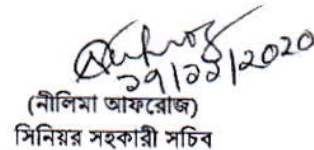 2020
(নীলিমা আফরোজ)
সিনিয়র সহকারী সচিব